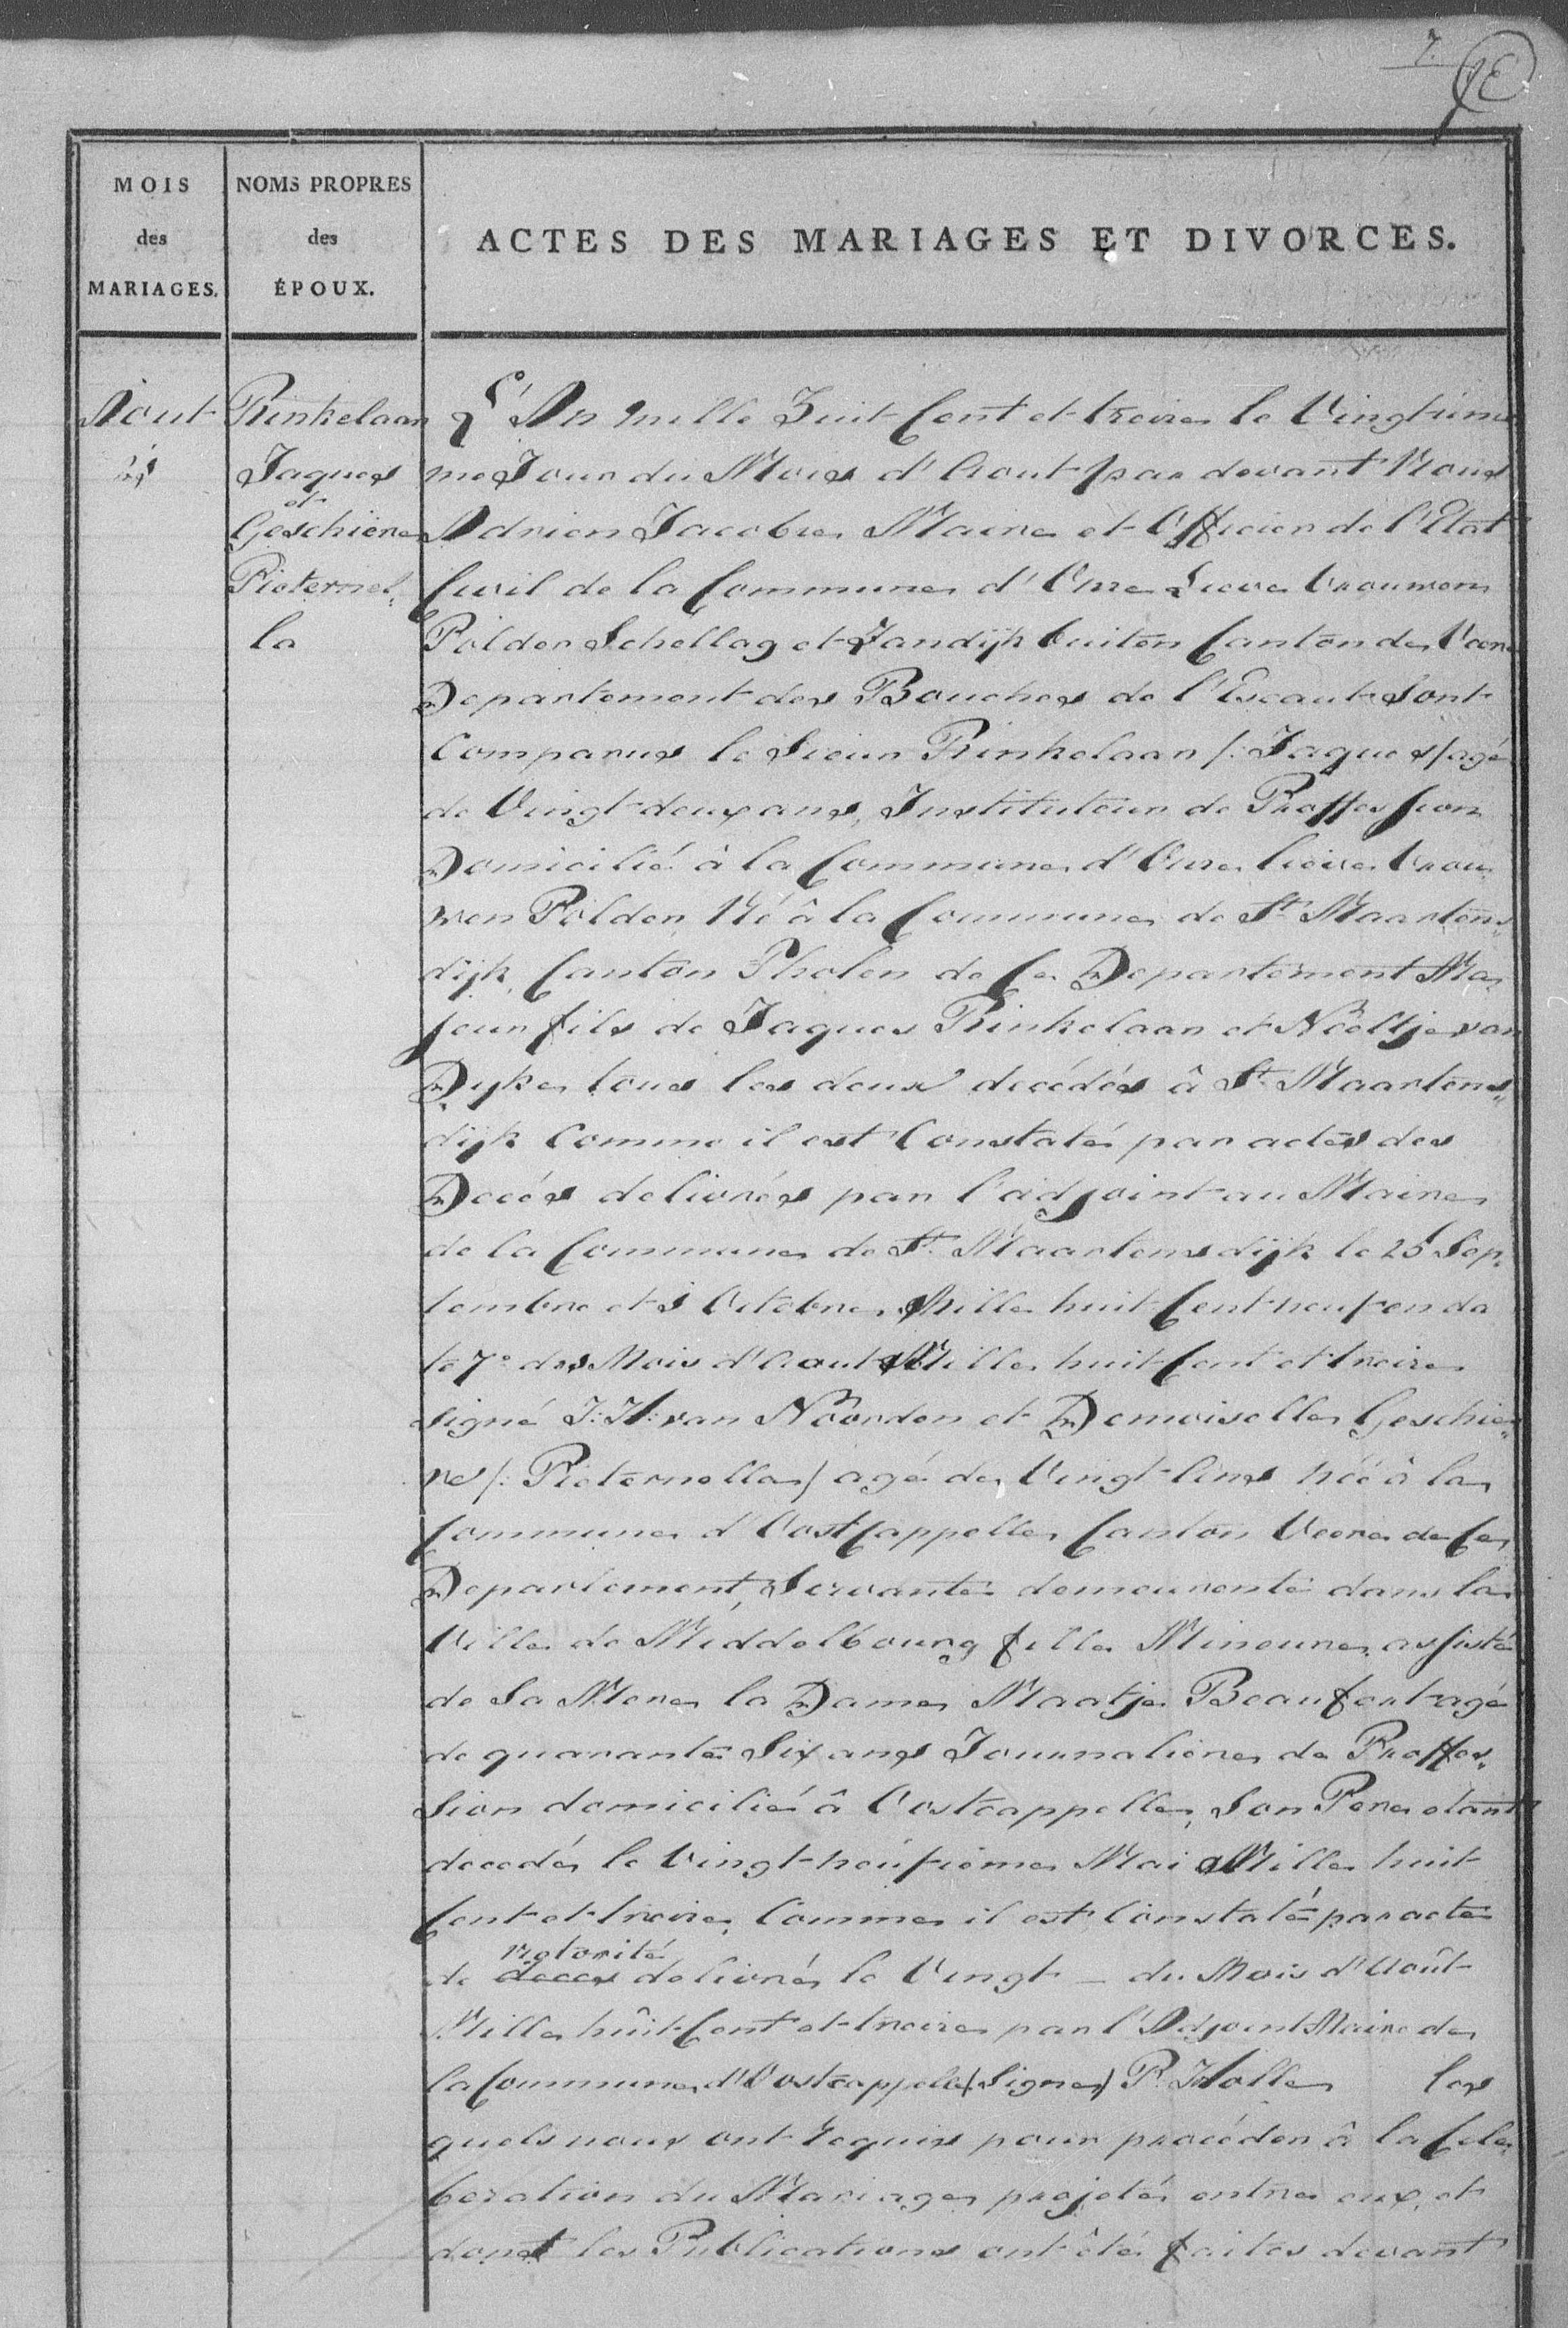 7.
MOIS
des
MARIAGES.
NOMS PROPRES
des
ÉPOUX.
ACTES DES MARIAGES ET DIVORCES.
Aout
Rinkelaar
Jaques
et
Geschiere
Pieternel„
la
L'An Mille Huit Cent et treize le Vingtieme
me Jour du Mois d'Aout par devant Nous
Adrien Jacobse Maire et Officier de l'Etat
Civil de la Commune d'Onze Lieve Vrouwen
Polder Schellag et Zandijk buiten Canton de Veere
Departement des Bouches de l'Escaut Sont
Comparus le Sieur Rinkelaar /: Jaques / agé
de Vingt deux ans, Instituteur de Proffession
Domicilié à la Commune d'Onze lieve Vrou„
wen Polder, Né â la Commune de St. Maartens„
dijk, Canton Tholen de Ce Departement Ma„
jeur fils de Jaques Rinkelaar et Nëeltje van
Dyke tous les deux decédés â St. Maartens„
dijk Comme il est Constaté par actes des
Decés delivrés par l'adjoint au Maire
de la Commune de St. Maartensdijk le 25 Sep„
tembre et 3 Octobre Mille huit Cent neuf en da
te 7e. de Mois d'Aout Mille huit Cent et treize
signé J: H: van Noorden et Demoiselle Geschie„
re /: Pieternella / agé de Vingt Ans née â la
Commune d'Oostcappelle Canton Veere de Ce
Departement, Servante demeurente dans la
Ville de Middelbourg fille Mineure, assisté
de Sa Mere la Dame Maatje Beaufort agé
de quarante Six ans Journaliere de Proffes„
sion domicilié â Oostcappelle, Son Pere etant
decedé le Vingt-neufieme Mai Mille huit
Cent et treize, Comme il est Constaté par acte
notorité
de deces delivré le Vingt — du Mois d'Août
Mille huit Cent et treize par l'Adjoint Maire de
la Commune d'Oostcappelle / Signe / P. Holle les
quels nous ont requis pour procéder â la Cele„
beration du Mariage projeté entre eux, et
dont les Publications ont été faites devant